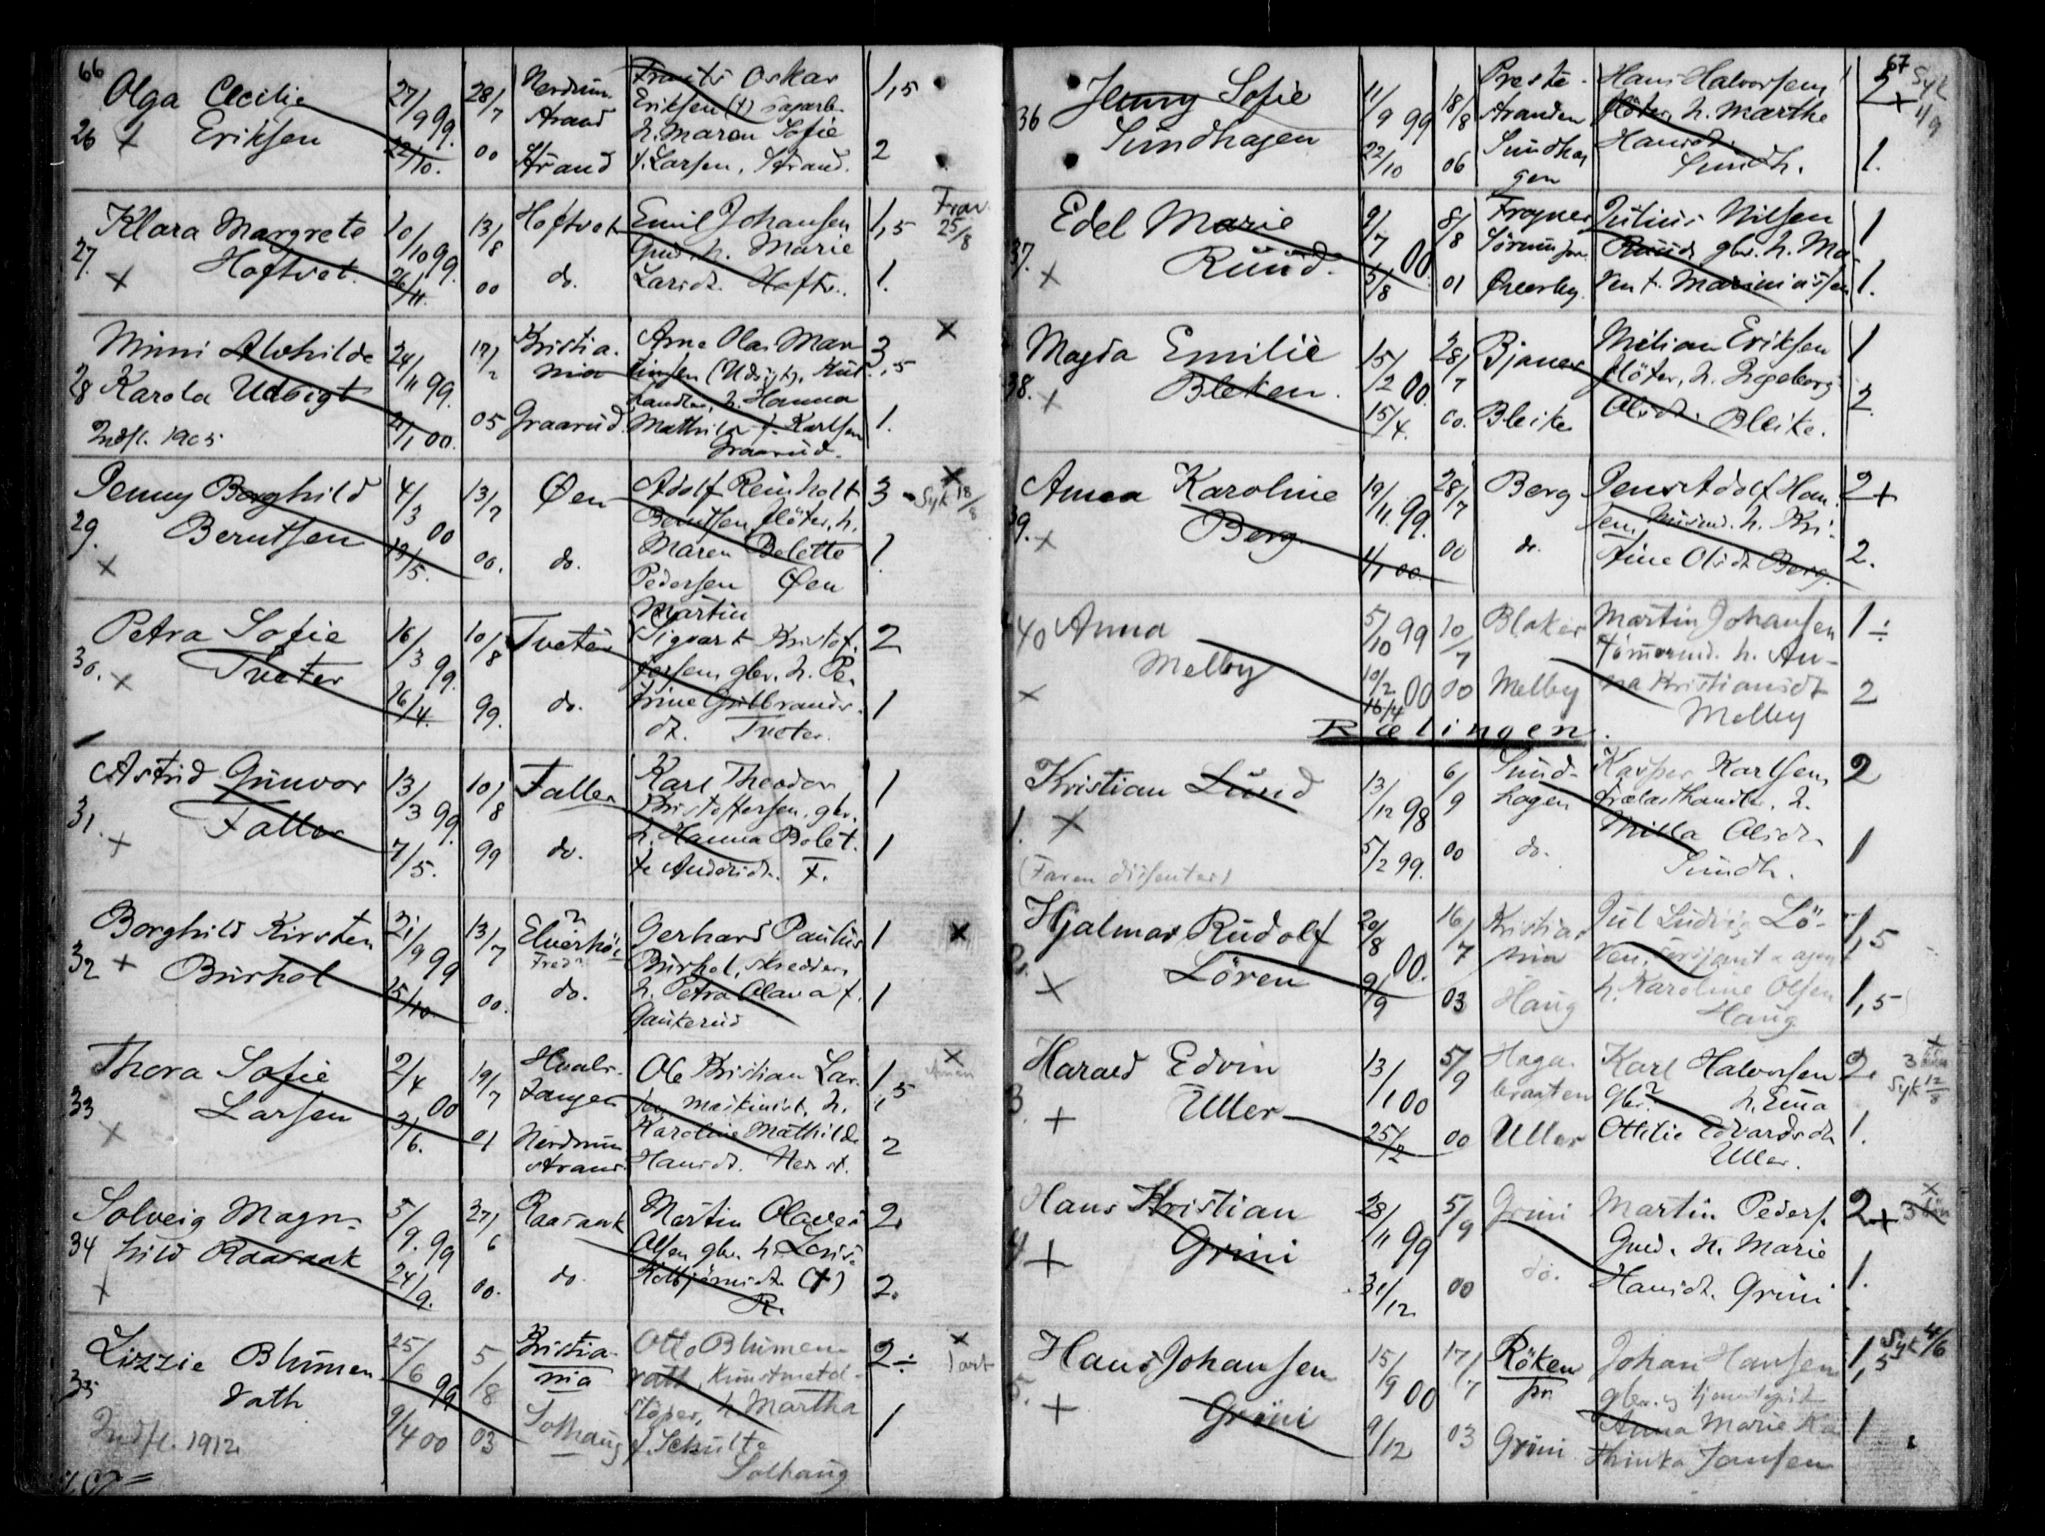 66
Olga Cecilie 27/9 99. 28/7 Nerdrum Frants Oskar 1,5
26 + Eriksen 22/10. 00 strand Eriksen (+) sagarb.
Strand h. Maren Sofie
f. Larsen, Strand. 2
Klara Margrete 10/10 99. 13/8 Hoftvet Emil Johansen 1,5 Frav. 25/8
27. Hoftvet. Gmd. h. Marie
+ 26/11. 00 do. Larsdt. Hoftv. 1.
Mimi Alvhilde 24/11 99. 17/2 Kristia- Arne Olai Mar 3,5 x
28 Karola Udsigt nia tinsen (Udsigt),
handler, h. Hanna
Indfl. 1905 21/1 00. 05 Graarud. Mathilde f. Karlsen 1.
Graarud.
Jenny Borghild 4/3 00 13/7 Øen Adolf Reinholt 3 x Syk 18/8
29. Berntsen Berntsen fløter, h.
+ 13/5. 00. do. Maren Delette 1.
Pedersen Øen
Martin
Petra Sofie 16/3 99. 10/8 Tveter Sigvart Kristof- 2
30. + Tveter fersen gbr. h. Pe-
26/4. 99. do. trine Gulbrands- 1
dt. Tveter.
Astrid Gunvor 13/3 99. 10/8 Faller Karl Theodor 1
31. Faller Kristoffersen, gbr.
+ h. Hanna Bolet-
7/5. 99 do. te Andersdt. F. 1
Borghild Kirsten 21/9 99 13/7 Elverhöi Gerhard Paulus 1 x
32 + Burhol Fredr. Burhol, skredder,
25/10 00. do. h. Petra Olava f. 1
Gaukerud
Thora Sofie 2/4 00 19/7 Hvals- Ole Kristian Lar- 1,5 x
33 Larsen tangen sen maskinist, h.
+ 3/6. 01 Nerdrum Karoline Mathilde 2
strand Hansdt. Nerdst.
Solveig Magn- 5/9. 99 27/6 Raasaak Martin Olaves 2.
34 hild Raasaak Olsen gbr. h. Lovise
+ 24/9. 00. do Kolbjörnsdt. (+) 2.
R.
Lizzie Blumen 25/6 99 5/8 Kristia- Otto Blumen- 2 ÷ x
35 rath nia rath, kunstmetal-
støper, h. Martha
Indfl. 1912 9/4 00 03 Solhaug f. Schulte 1
Solhaug
67
Jenny Sofie 11/9 99 18/8 Preste- Hans Halvorsen 2+ Syk 1/9
36 Sundhagen stranden fløter, h. Marthe
22/10 06 Sundha Hansdt. 1.
gen Sundh.
Edel Marie 9/7 00. 8/8 Frogner Julius Nilsen 1
37. Ruud. Sørum pr. Ruud gbr. h. Ma-
+ 5/8 01 ren f. Mariniussen 1.
Magda Emilie 15/2 00. 28/7 Bjaner Milian Eriksen 1
38. + Bleken. fløter, h. Ingeborg
15/4. 00. Bleike Olsdt. Bleike. 2.
Anna Karoline 19/11 99. 28/7 Berg Jens Adolf Han- 2+
39. Berg sen, h. Kri-
+ 1/1 00. 00 do. stine Olsdt Berg. 2.
40 Anna 5/10 99 10/7 Blaker Martin Johansen 1 ÷
Melby tømmermd. h. An-
x 10/2 00 16/4 00 Melby na Kristiansdt 2
Melby
Rælingen.
Kristian Lund 13/12 98 6/9 Sund- Kasper Karlsen, 2
hagen trælasthandler. h.
1. + Milla Olsdt.
5/2 99. 00 do. Sundh. 1
(Faren dissenter)
Hjalmar Rudolf 20/8 00. 16/7 Kristia Jul Ludvig Lö- 1,5
2. Lören nia ren, sersjant & agent
+ 9/9 03 Haug h. Karoline Olsen 1,5
Haug
Harald Edvin 13/1 00 5/9 Haga- Karl Halvorsen 2. x 3 Syk 12/8
3. Uller braaten gbr. h. Ema
+ 25/2 00 Uller Ottilie Edvardsdt 1.
Uller.
Hans Kristian 28/11 99 5/9 Grini Martin Peders. 2+ x 3
4 Grini Gmd. h. Marie
+ 31/12 00 do. Hansdt. Grini 1.
Hans Johansen 15/9 00 17/7 Röken Johan Hansen 1,5 Syk 4/6
5. pr. gbr. og
+ Grini Anna Marie Ka
9/12 03 Grini thinka Jansen 1